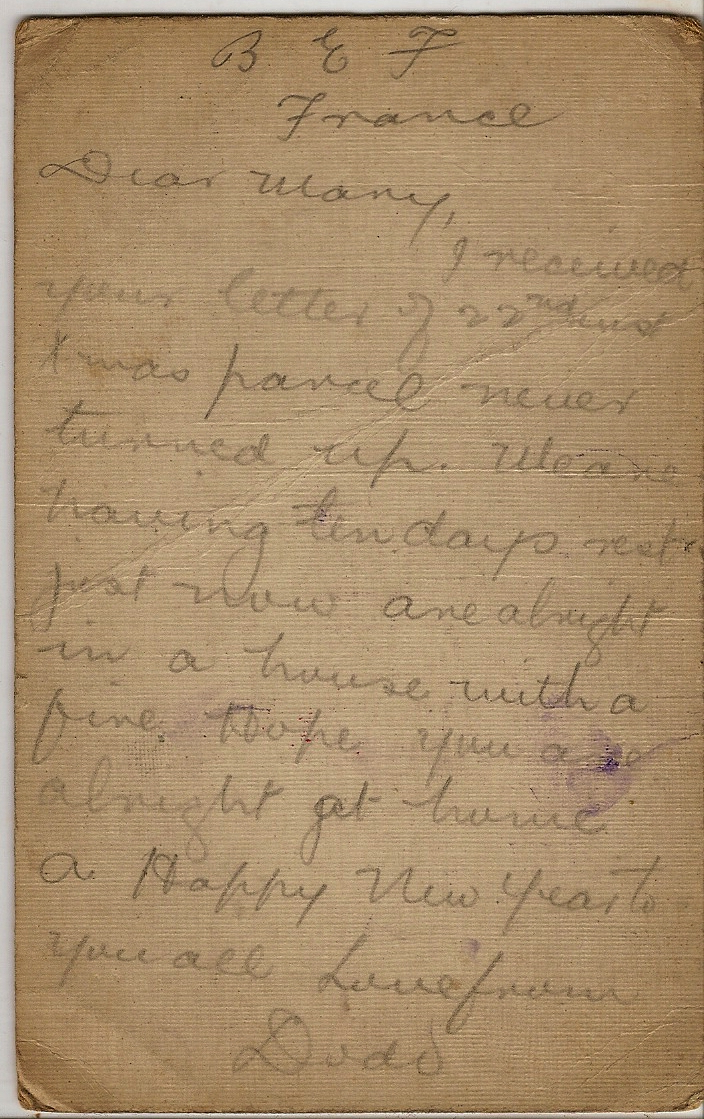 B E F
France
Dear Mary,
I received
your letter of 22nd inst
Xmas parcel never
turned up. We are
having ten days rest
just now are alright
in a house with a
fire. Hope you are
alright at home
a Happy New Year to
you all Love from
Dodo